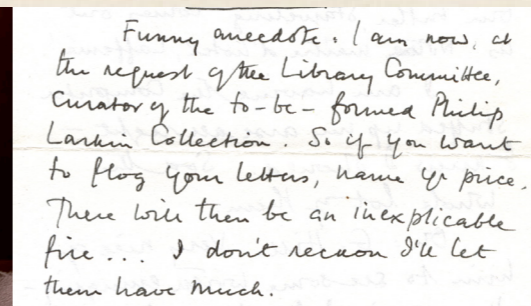 Funny anecdote: I am now, at
the request of the Library Committee,
Curator of the to-be-formed Philip
Larkin Collection. So if you want
to flog your letters, name yr price.
There will then be an inexplicable
fire... I don't reckon I'll let
them have much.